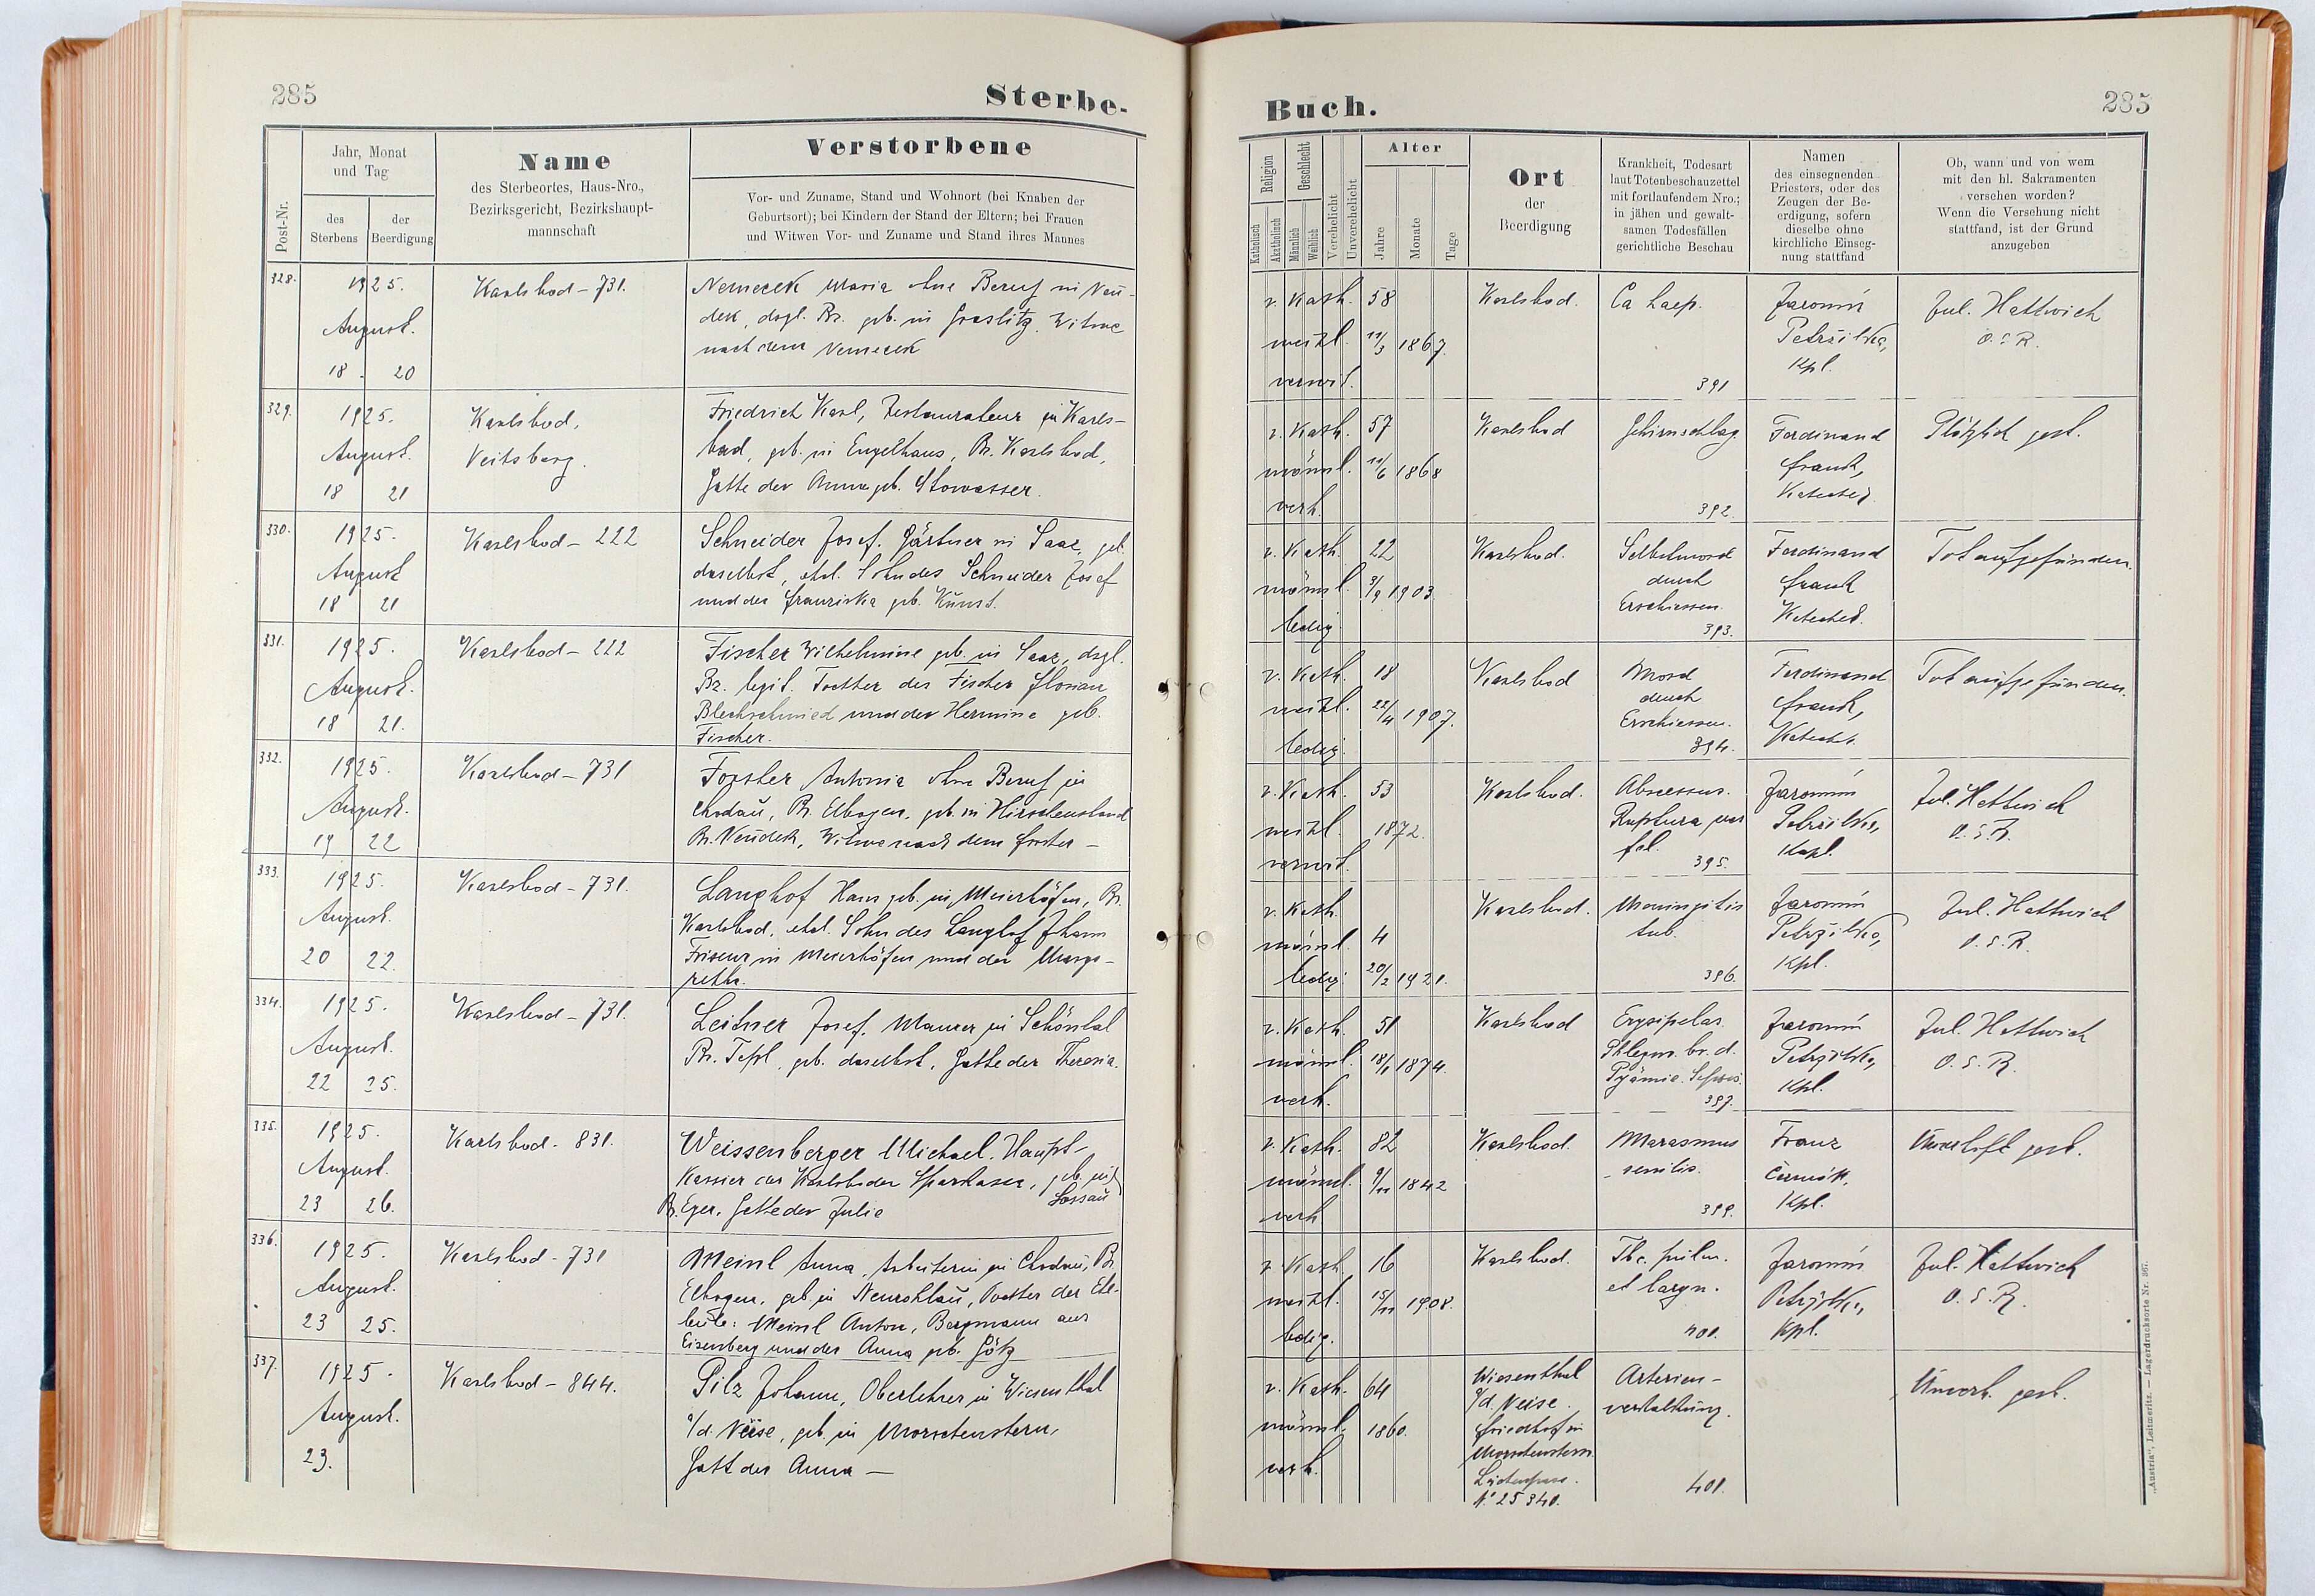 285
Sterbe-
Post-Nr.
Jahr, Monat
und Tag
des
Sterbens
der
Beerdigung
Name
des Sterbeortes, Haus-Nro.,
Bezirksgericht, Bezirkshaupt-
mannschaft
Verstorbene
Vor- und Zuname, Stand und Wohnort (bei Knaben der
Geburtsort); bei Kindern der Stand der Eltern; bei Frauen
und Witwen Vor- und Zuname und Stand ihres Mannes
328.
1925.
August.
18. 20
Karlsbad - 731.
Nemecek Maria ohne Beruf in Neu-
dek, dsgl. Bz. geb. in Graslitz. Witwe
nach dem Nemecek
329.
1925.
August.
18 21
Karlsbad,
Veitsberg.
Friedrich Karl, Restaurateur in Karls-
bad, geb. in Engelhaus, Bz. Karlsbad,
Gatte der Anna geb. Stowasser.
330.
1925.
August
18 21
Karlsbad - 222
Schneider Josef. Gärtner in Saaz, geb.
daselbst, ehel. Sohn des Schneider Josef
und der Franziska geb. Kunst.
331.
1925.
August.
18 21.
Karlsbad - 222
Fischer Wilhelmine geb. in Saaz, dsgl.
Bz. legit. Tochter des Fischer Florian
Blechschmied und der Hermine geb.
Fischer.
332.
1925.
August.
19 22
Karlsbad - 731
Forster Antonia ohne Beruf in
Chodau, Bz. Elbogen, geb. in Hirschenstand
Bz. Neudek, Witwe nach dem Forster -
333.
1925.
August.
20 22.
Karlsbad - 731.
Langhof Hans geb. in Meierhöfen, Bz.
Karlsbad, ehel. Sohn des Langhof Johann
Friseur in Meierhöfen und der Marga-
retha.
334.
1925.
August.
22 25.
Karlsbad - 731.
Leitner Josef. Maurer in Schönthal
Bz. Tepl, geb. daselbst, Gatte der Theresia.
335.
1925.
August.
23 26.
Karlsbad - 831.
Weissenberger Michael. Haupt-
kassier der Karlsbader Sparkasse, geb. in
Bz. Eger, Gatte der Julie
336.
1925.
August.
23 25.
Karlsbad - 731
Meinl Anna, Arbeiterin in Chodau, Bz.
Elbogen, geb. in Neurohlau, Tochter der Ehe-
leute: Meinl Anton, Bergmann aus
Eisenberg und der Anna geb. Götz
337.
1925.
August.
23.
Karlsbad - 844.
Pilz Johann, Oberlehrer in Wiesenthal
a/d. Neisse, geb. in Morchenstern,
Gatt der Anna -
Buch.
285
Religion
Katholisch
Akatholisch
Geschlecht
Männlich
Weiblich
Verehelicht
Unverehelicht
Alter
Jahre
Monate
Tage
Ort
der
Beerdigung
Krankheit, Todesart
laut Totenbeschauzettel
mit fortlaufendem Nro.;
in jähen und gewalt-
samen Todesfällen
gerichtliche Beschau
Namen
des einsegnenden
Priesters, oder des
Zeugen der Be-
erdigung, sofern
dieselbe ohne
kirchliche Einseg-
nung stattfand
Ob, wann und von wem
mit den hl. Sakramenten
versehen worden?
Wenn die Versehung nicht
stattfand, ist der Grund
anzugeben
r. Kath. 58
weibl. 11/3 1867.
verwit.
Karlsbad.
391
Jaromir
Petržilka,
Kpl.
Jul. Hattwich
r. Kath. 57
männl. 11/6 1868
verh.
Karlsbad
Gehirnschlag
392.
Ferdinand
Frank,
Katechet.
Plötzlich gest.
r. Kath. 22
männl. 3/9 1903
ledig
Karlsbad.
Selbstmord
durch
Erschiessen.
393.
Ferdinand
Frank
Katechet.
Tot aufgefunden.
r. Kath. 18
weibl. 22/4 1907.
ledig.
Karlsbad
Mord
durch
Erschiessen.
394.
Ferdinand
Frank,
Katechet.
Tot aufgefunden.
r. Kath. 53
weibl. 1872.
verwit.
Karlsbad.
Abscessus.
Ruptura
395.
Jaromir
Petržilka,
Kapl.
Jul. Hattwich
O.S.R.
r. Kath.
männl. 4
ledig 20/2 1921.
Karlsbad.
Meningitis
tub.
396.
Jaromir
Petržilka,
Kpl.
Jul. Hattwich
O.S.R.
r. Kath. 51
männl. 18/1 1874.
verh.
Karlsbad
Erysipelas.
Phlegm. br. d.
Pyämie. Sepsis.
397.
Jaromir
Petržilka,
Kpl.
Jul. Hattwich
O.S.R.
r. Kath. 82
männl. 9/11 1842
verh
Karlsbad.
Marasmus
senilis.
399.
Franz
Kpl.
gest.
r. Kath. 16
weibl. 15/11 1908.
ledig.
Karlsbad.
Tbc. pulm.
et laryn.
400.
Jaromir
Petržilka,
Kpl.
Jul. Hattwich
O.S.R.
r. Kath. 64
männl. 1860.
verh.
Wiesenthal
a/d. Neisse.
Friedhof in
Morchenstern
Leichenpass.
No 25340.
Arterien-
verkalkung.
401.
Unverh. gest.
„Austria“, Leitmeritz. — Lagerdrucksorte Nr. 367.